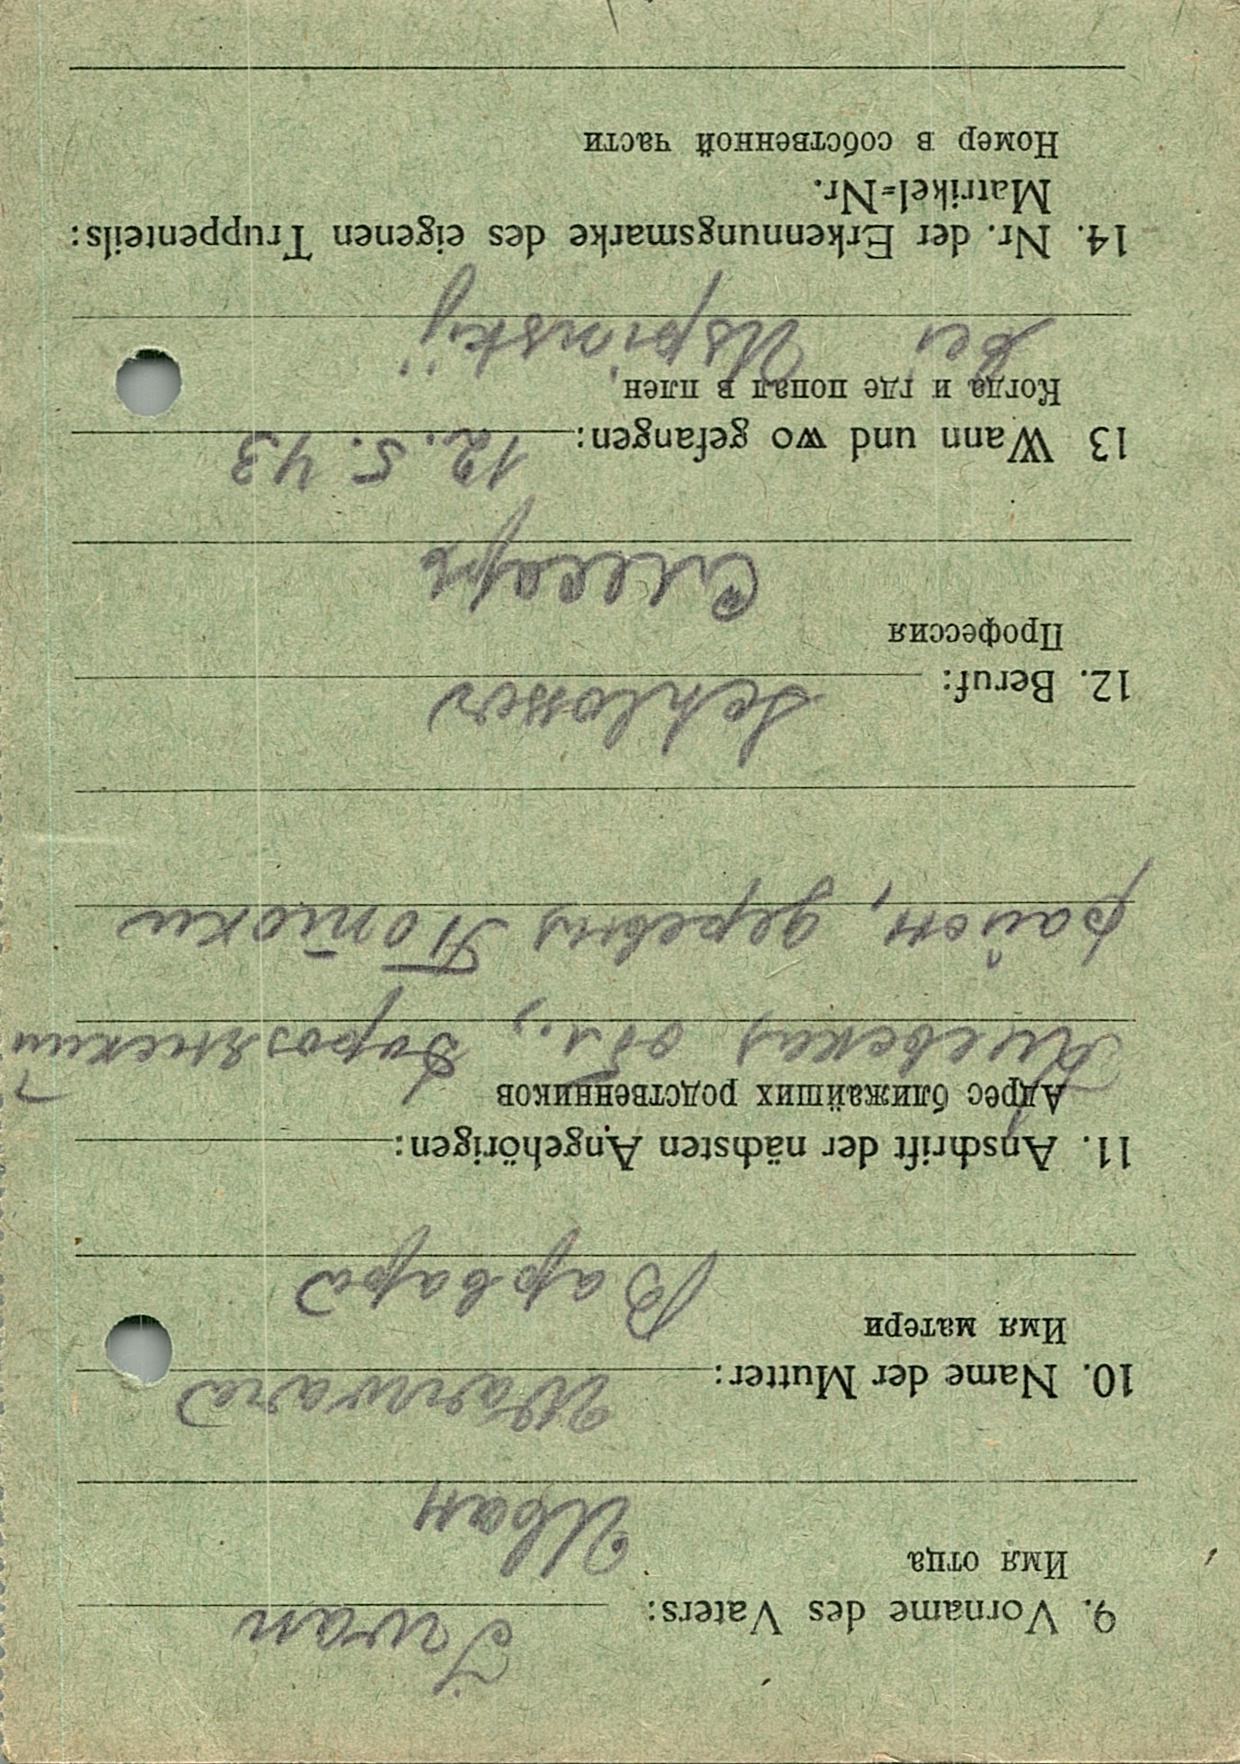 9. Vorname des Vaters: Iwan
Имя отца
Иван
10. Name der Mutter: Warwara
Имя матери
Варвара
11. Anschrift der nächsten Angehörigen:
Адрес ближайших родственников
Киевская обл.,
район, деревня Потоки
12. Beruf: Schlosser
Профессия
Слесарь
13 Wann und wo gefangen: 12. 5. 43
Когда и где попал в плен
bei Uspinskij
14. Nr. der Erkennungsmarke des eigenen Truppenteils:
Matrikel=Nr.
Номер в собственной части